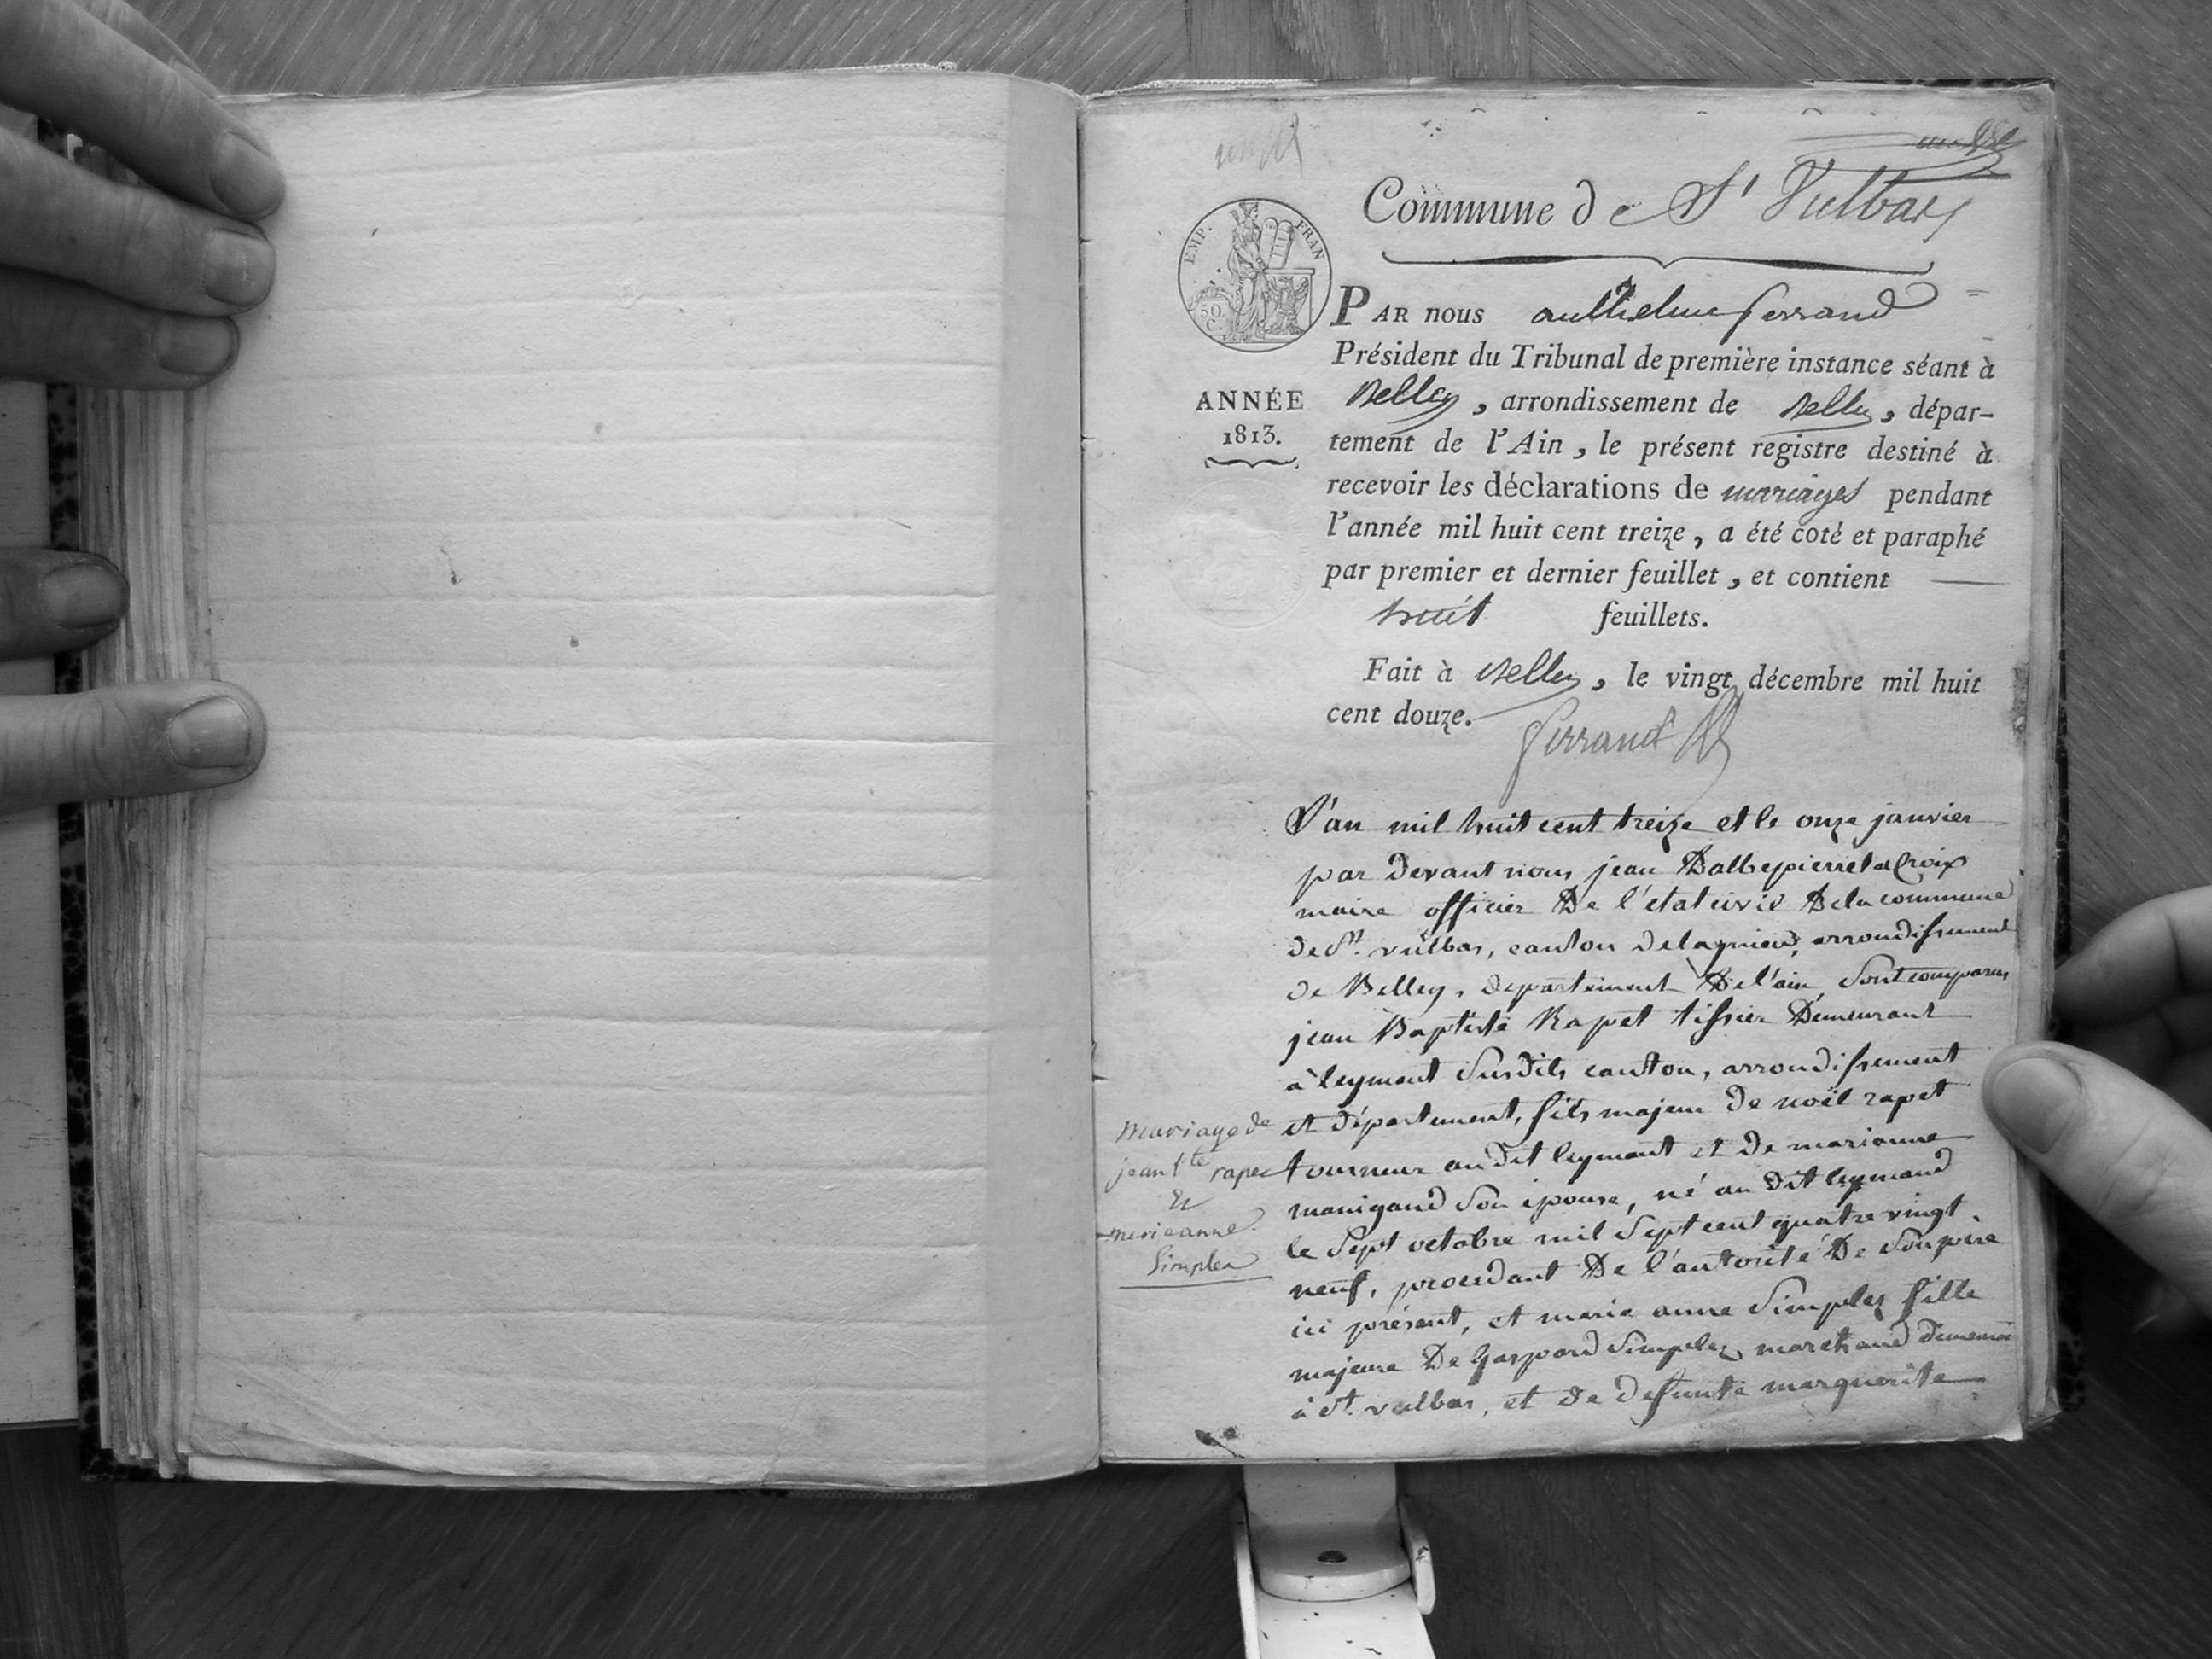 Commune de St Vulbas
EMP. FRAN
50.
C.
PAR nous anthelme ferrand
Président du Tribunal de première instance séant à
Belley, arrondissement de Belley, dépar-
ANNÉE
1813.
tement de l'Ain, le présent registre destiné à
recevoir les déclarations de mariages pendant
l'année mil huit cent treize, a été coté et paraphé
par premier et dernier feuillet, et contient
huit feuillets.
Fait à Belley, le vingt décembre mil huit
cent douze.
ferrand
L'an mil huit cent treize et le onze janvier
par devant nous jean Dalbepierre lacroix
maire officier De l'etat civil De la commune
de St. vulbas, canton de lagnieu, arrondissement
de Belley, departement De l'ain, Sont comparus
jean Baptiste Rapet tissier Demeurant
à leymont Susdits canton, arrondissement
et département, fils majeur de noël rapet
tourneur au dit leymont et de marianne
manigand Son épouse, né au dit leymond
le Sept octobre mil Sept cent quatre vingt
neuf, procedant De l'autorité De Son père
ici présent, et marie anne Simplex fille
majeure De Gaspard Simplex marchand demeurant
à St. vulbas, et de defunte marguerite
Mariage de
jean Bte rapet
Et
marieanne
Simplex